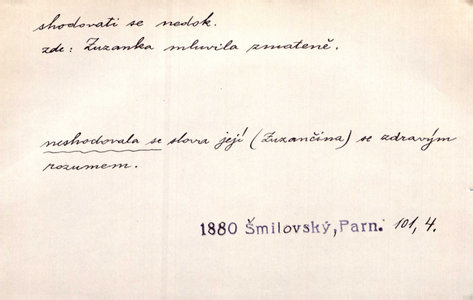 shodovati se nedok.
zde: Zuzanka mluvila zmateně.
neshodovala se slova její (Zuzančina) se zdravým
rozumem.
1880 Šmilovský, Parn. 101, 4.